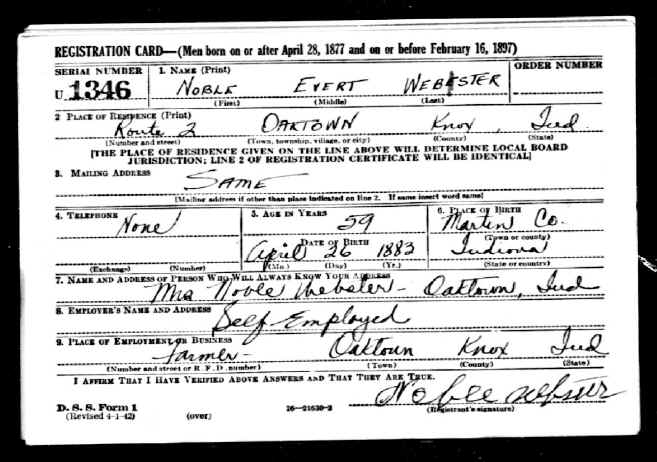 REGISTRATION CARD—(Men born on or after April 28, 1877 and on or before February 16, 1897)
SERIAL NUMBER 1. NAME (Print) ORDER NUMBER
U 1346 NOBLE EVERT WEBSTER
(First) (Middle) (Last)
2 PLACE OF RESIDENCE (Print)
Route 2 OAKTOWN Knox, Ind
(Number and street) (Town, township, village, or city) (County) (State)
[THE PLACE OF RESIDENCE GIVEN ON THE LINE ABOVE WILL DETERMINE LOCAL BOARD
JURISDICTION; LINE 2 OF REGISTRATION CERTIFICATE WILL BE IDENTICAL]
3. MAILING ADDRESS
SAME
(Mailing address if other than place indicated on line 2. If same insert word same)
4. TELEPHONE 5. AGE IN YEARS 6. PLACE OF BIRTH
None 59 Martin Co.
DATE OF BIRTH (Town or county)
April 26 1883 Indiana
(Exchange) (Number) (Mo.) (Day) (Yr.) (State or country)
7. NAME AND ADDRESS OF PERSON WHO WILL ALWAYS KNOW YOUR ADDRESS
Mrs Noble Webster - Oaktown, Ind
8. EMPLOYER'S NAME AND ADDRESS
Self Employed
9. PLACE OF EMPLOYMENT OR BUSINESS
Farmer - Oaktown Knox Ind
(Number and street or R. F. D. number) (Town) (County) (State)
I AFFIRM THAT I HAVE VERIFIED ABOVE ANSWERS AND THAT THEY ARE TRUE.
Noble Webster
D. S. S. Form 1 16—21630-2 (Registrant's signature)
(Revised 4-1-42) (over)